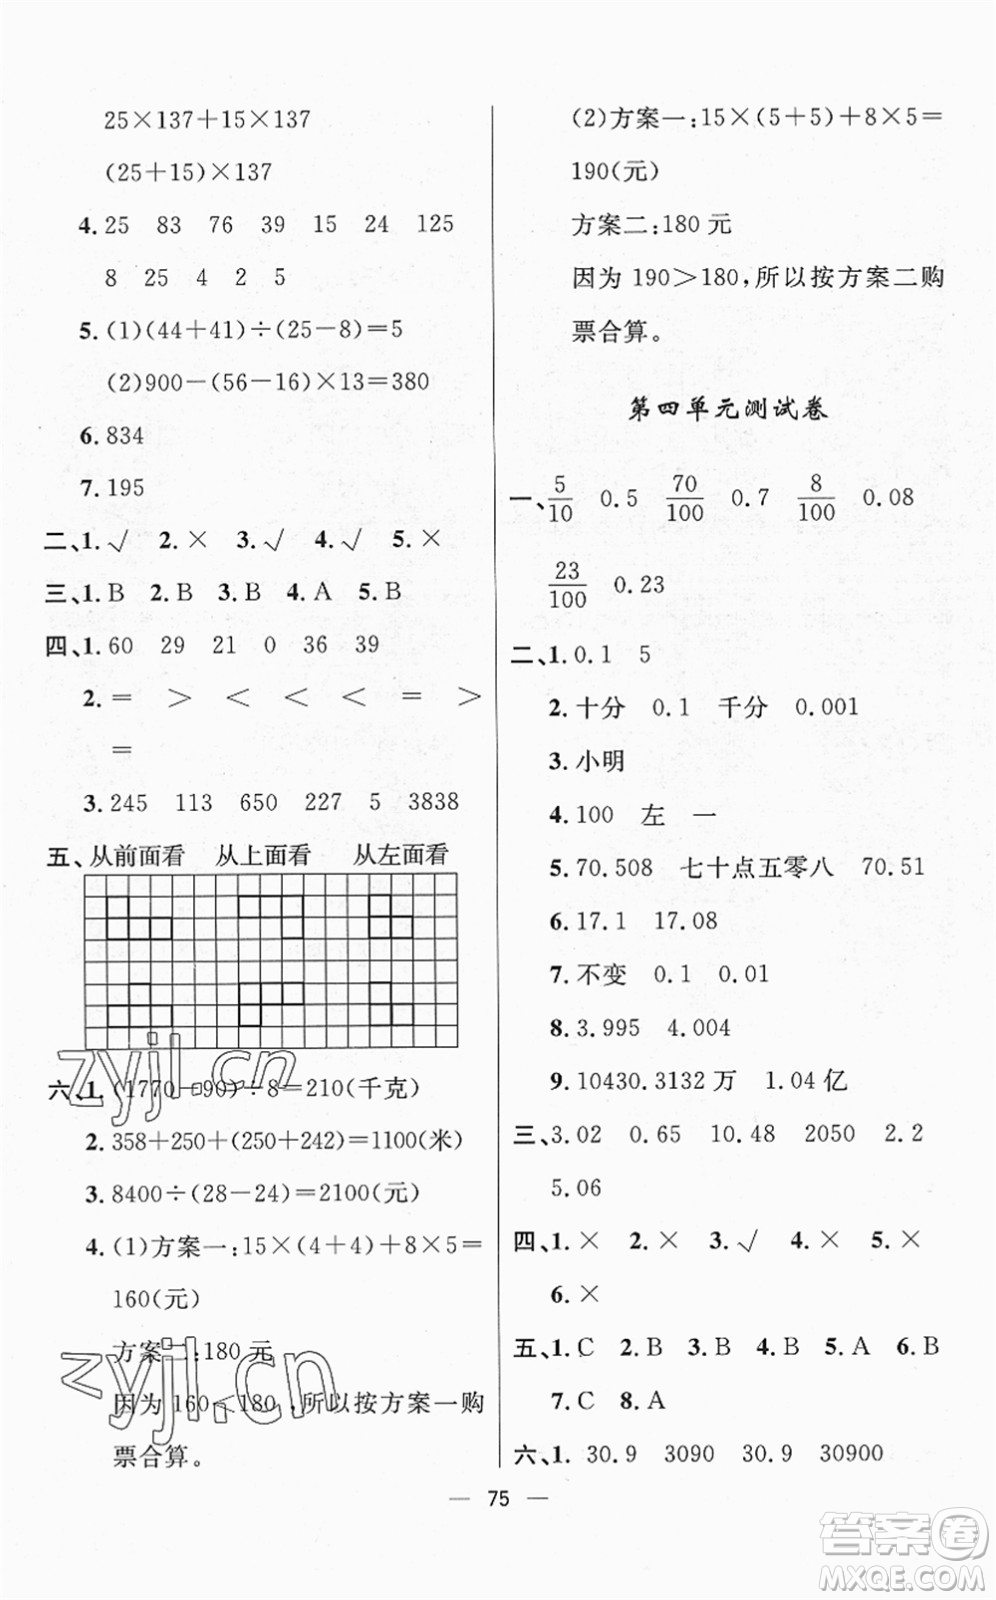 25×137+15×137
(25+15)×137
4. 25 83 76 39 15 24 125
8 25 4 2 5
5. (1)(44+41)÷(25-8)=5
(2)900-(56-16)×13=380
6. 834
7. 195
二、1. √ 2. × 3. √ 4. √ 5. ×
三、1. B 2. B 3. B 4. A 5. B
四、1. 60 29 21 0 36 39
2. = > < < = >
=
3. 245 113 650 227 5 3838
五、从前面看 从上面看 从左面看
六、1. (1770-90)÷8=210(千克)
2. 358+250+(250+242)=1100(米)
3. 8400÷(28-24)=2100(元)
4. (1)方案一:15×(4+4)+8×5=
160(元)
方案二:180 元
因为 160<180,所以按方案一购
票合算。
(2)方案一:15×(5+5)+8×5=
190(元)
方案二:180 元
因为 190>180,所以按方案二购
票合算。
第四单元测试卷
一、5/10 0.5 70/100 0.7 8/100 0.08
23/100 0.23
二、1. 0.1 5
2. 十分 0.1 千分 0.001
3. 小明
4. 100 左 一
5. 70.508 七十点五零八 70.51
6. 17.1 17.08
7. 不变 0.1 0.01
8. 3.995 4.004
9. 10430.3132 万 1.04 亿
三、3.02 0.65 10.48 2050 2.2
5.06
四、1. × 2. × 3. √ 4. × 5. ×
6. ×
五、1. C 2. B 3. B 4. B 5. A 6. B
7. C 8. A
六、1. 30.9 3090 30.9 30900
— 75 —
zyjl.cn
zyjl.cn
答案卷
MXQE.COM